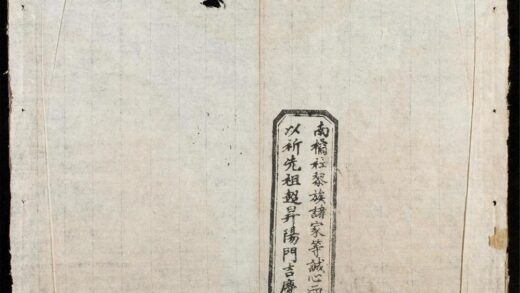 南橘社黎族諸家等誠心
以祈先祖超昇陽門吉慶